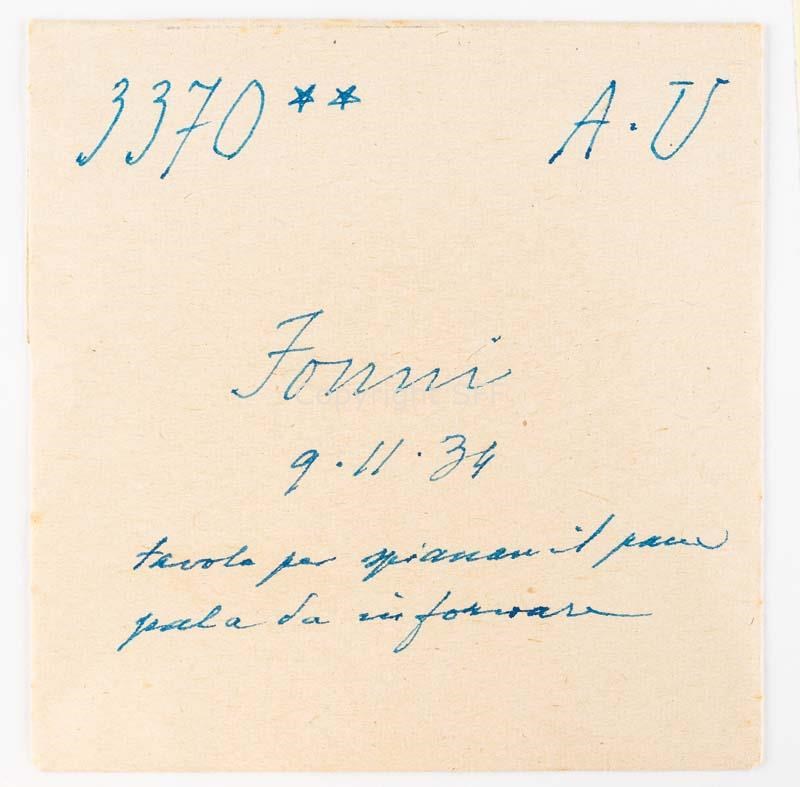 3370** A.U
Fonni
Copyright SFF
9.11.34
tavola per spianare il pane
pala da infornare